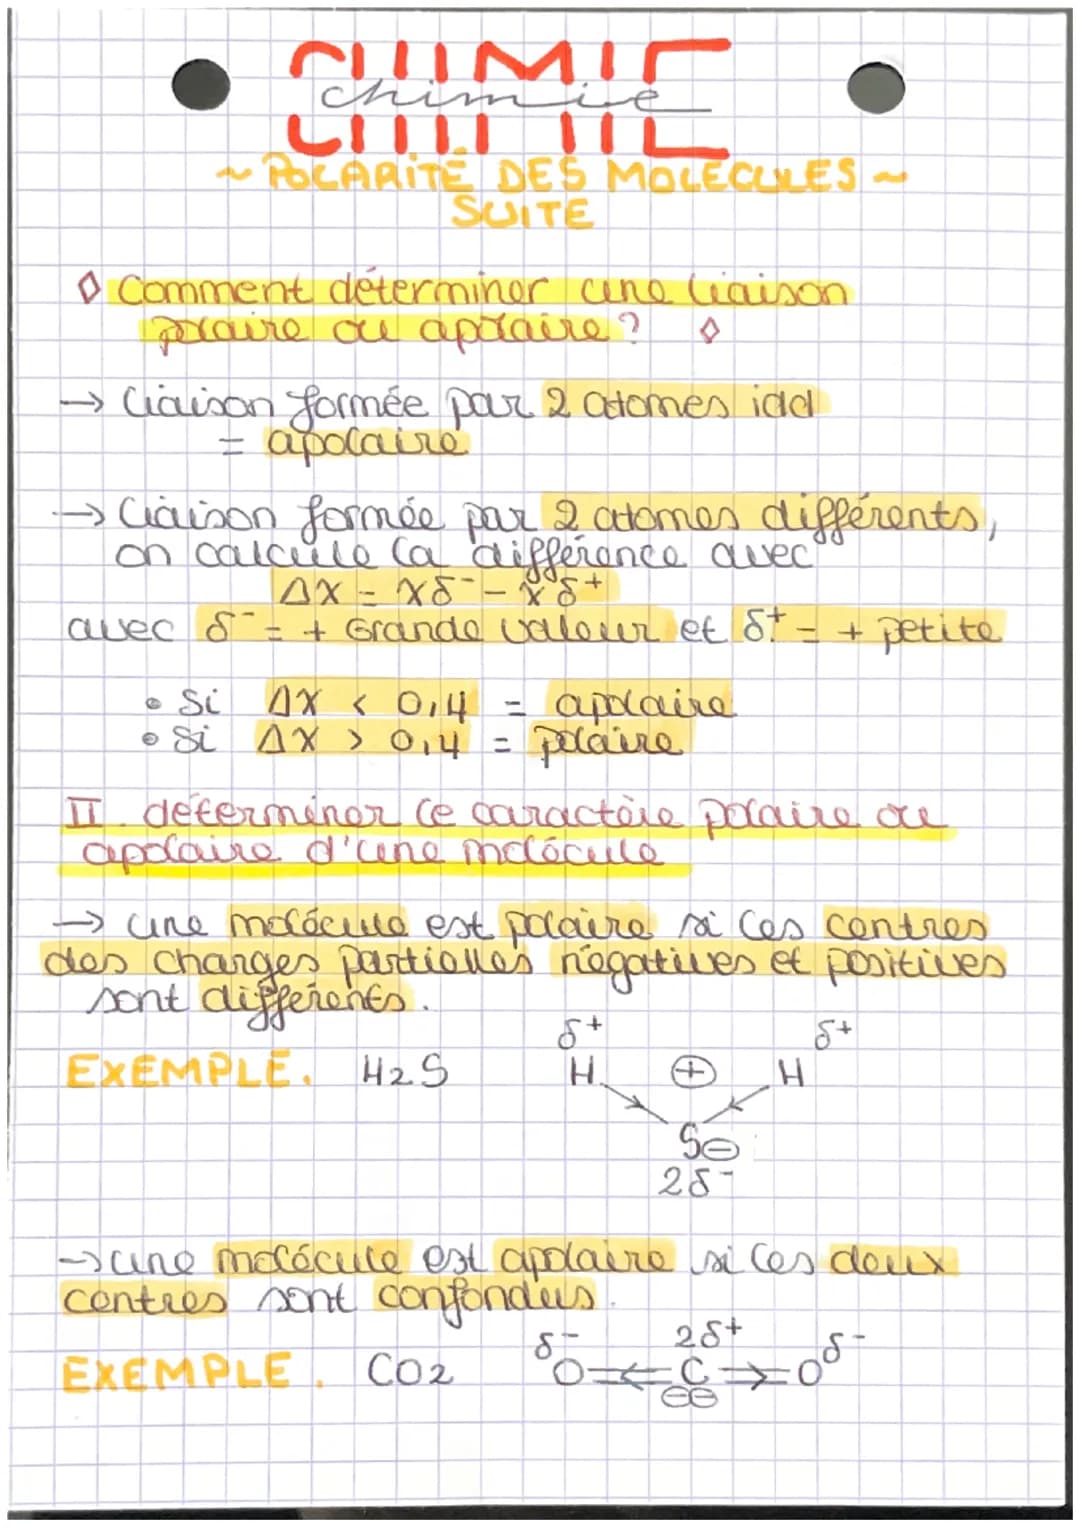 CHIMIE
chimie
~ POLARITÉ DES MOLÉCULES ~
SUITE
◊ Comment déterminer une liaison
polaire ou apolaire ? ◊
→ Liaison formée par 2 atomes idd
= apolaire
→ Liaison formée par 2 atomes différents,
on calcule la différence avec
ΔX = Xδ⁻ - Xδ⁺
avec δ⁻ = + Grande valeur et δ⁺ = + petite
• Si ΔX < 0,4 = apolaire
• Si ΔX > 0,4 = polaire
II. déterminer le caractère polaire ou
apolaire d'une molécule
→ une molécule est polaire si les centres
des charges partielles négatives et positives
sont différents.
δ+ δ+
EXEMPLE. H2S H ⊕ H
S⊖
2δ-
→ une molécule est apolaire si les deux
centres sont confondus.
δ- 2δ+ δ-
EXEMPLE. CO2 O C O
⊖⊖